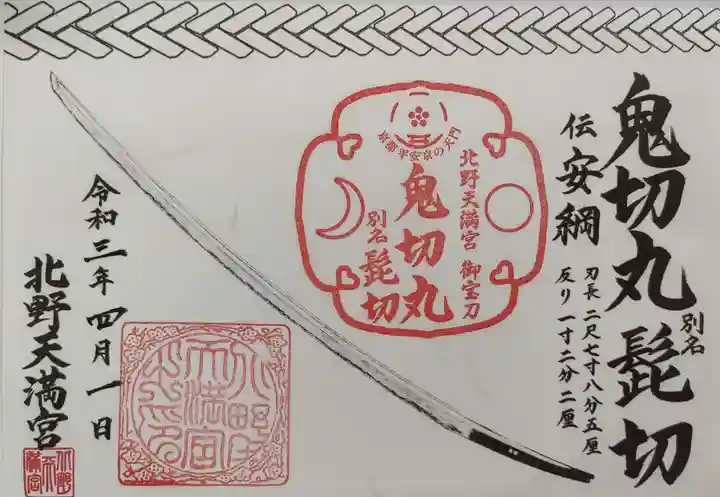 鬼切丸 別名 髭切
伝 安綱
刃長 二尺七寸八分五厘
反り 一寸二分二厘
京都平安京の天門
北野天満宮 御宝刀
鬼切丸
別名 髭切
令和三年 四月一日
北野天満宮
北野天満宮